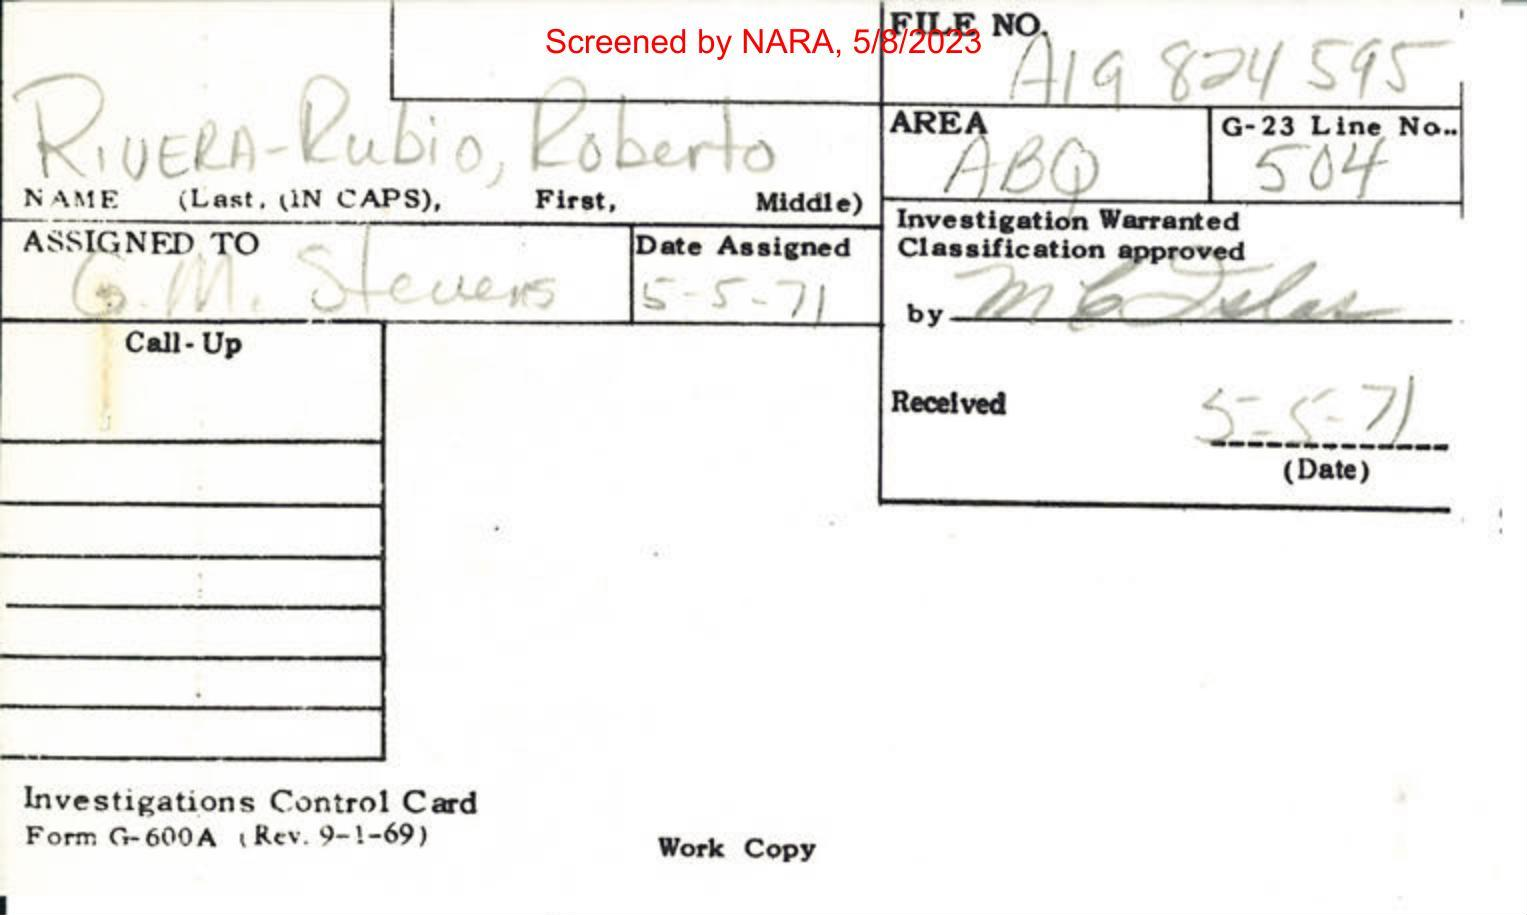 Screened by NARA, 5/8/2023
FILE NO.
A19 824 595
RIVERA-Rubio, Roberto
NAME (Last, (IN CAPS), First, Middle)
AREA
ABQ
G-23 Line No..
504
ASSIGNED TO
G. M. Stevens
Date Assigned
5-5-71
Investigation Warranted
Classification approved
by
Call-Up
Received
5-5-71
(Date)
Investigations Control Card
Form G-600A (Rev. 9-1-69)
Work Copy